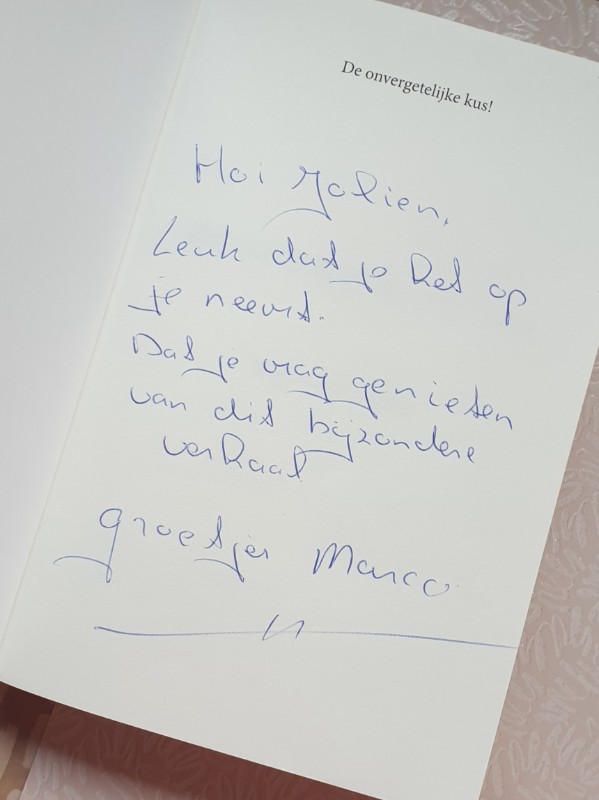 De onvergetelijke kus!
Hoi Jolien,
Leuk dat je het op
je neemt.
Dat je mag genieten
van dit bijzondere
verhaal
groetjes Marco